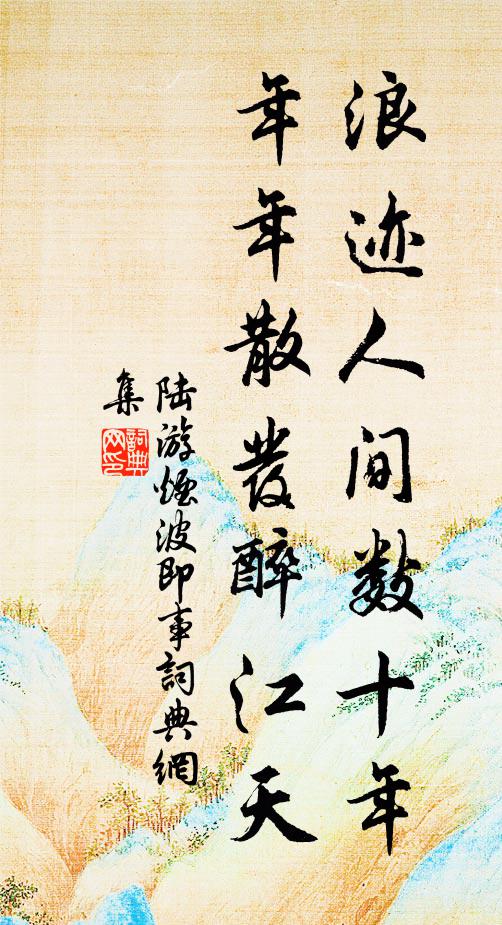 浪迹人间数十年
年年散发醉江天
陆游烟波即事詞典網
集
詞典
网印